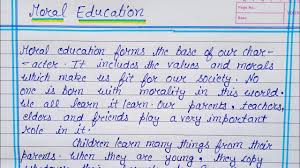 Moral Education
Page No.
Date
Moral education forms the base of our char-
-acter. It includes the values and morals
which make us fit for our society. No
one is born with morality in this world.
We all learn it. Our parents, teachers,
elders and friends play a very important
role in it.
Children learn many things from their
parents. When they are young, they copy